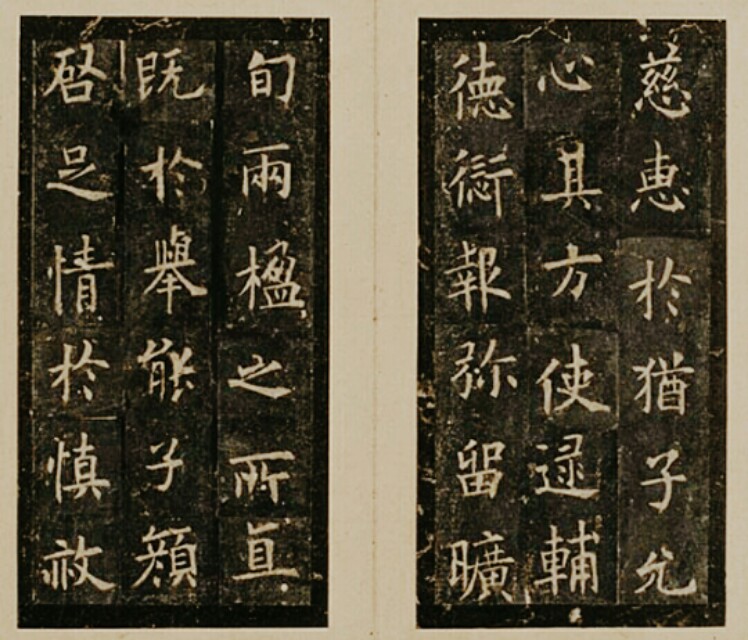 慈惠於猶子允
心其方使逯輔
德愆報弥留曠
旬兩楹之所直
既於舉能子顔
啓足情於慎赦